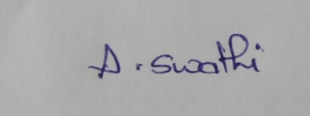 A. Swathi